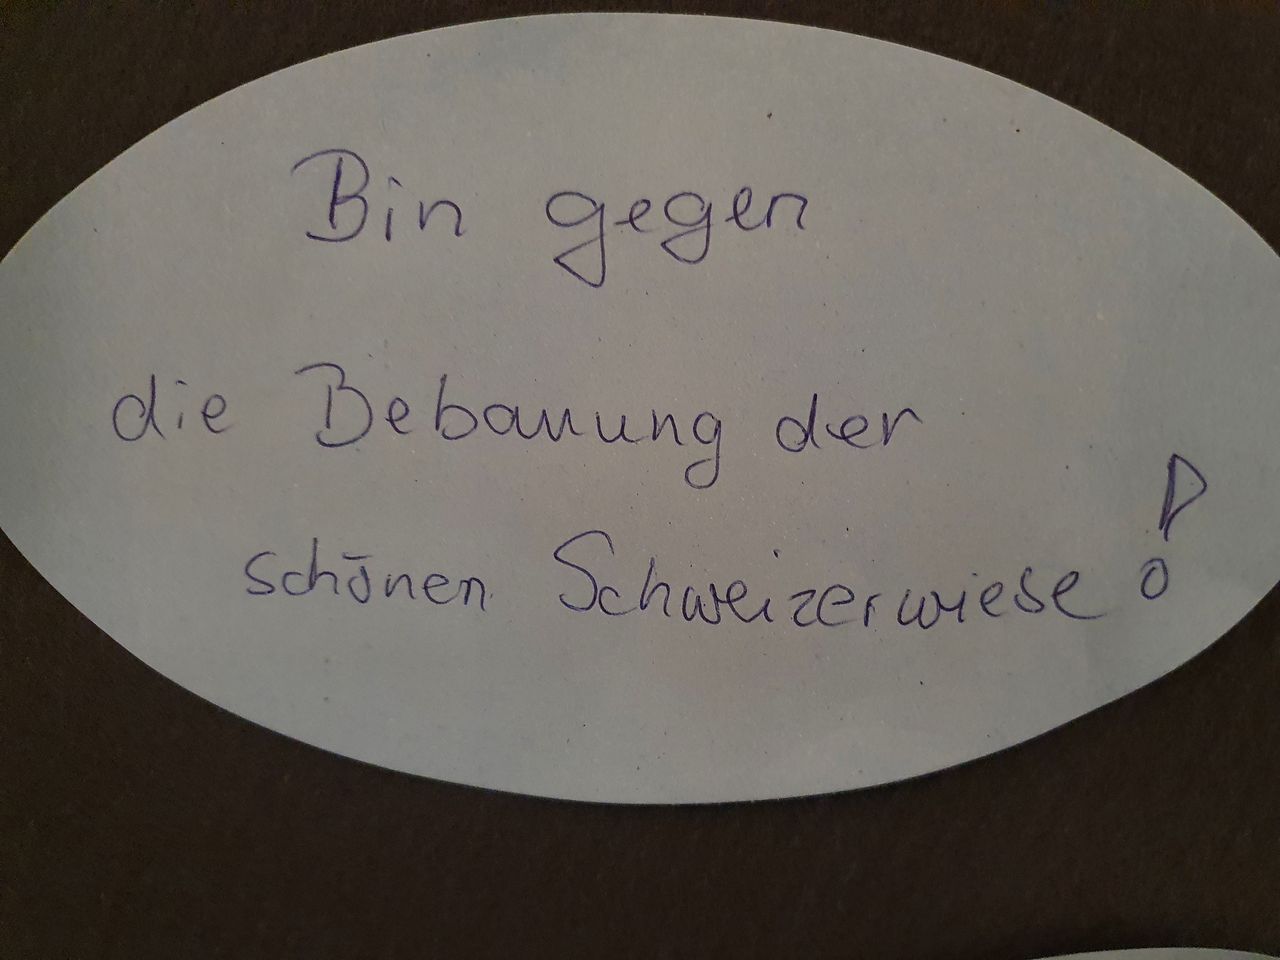 Bin gegen
die Bebauung der
schönen Schweizerwiese!